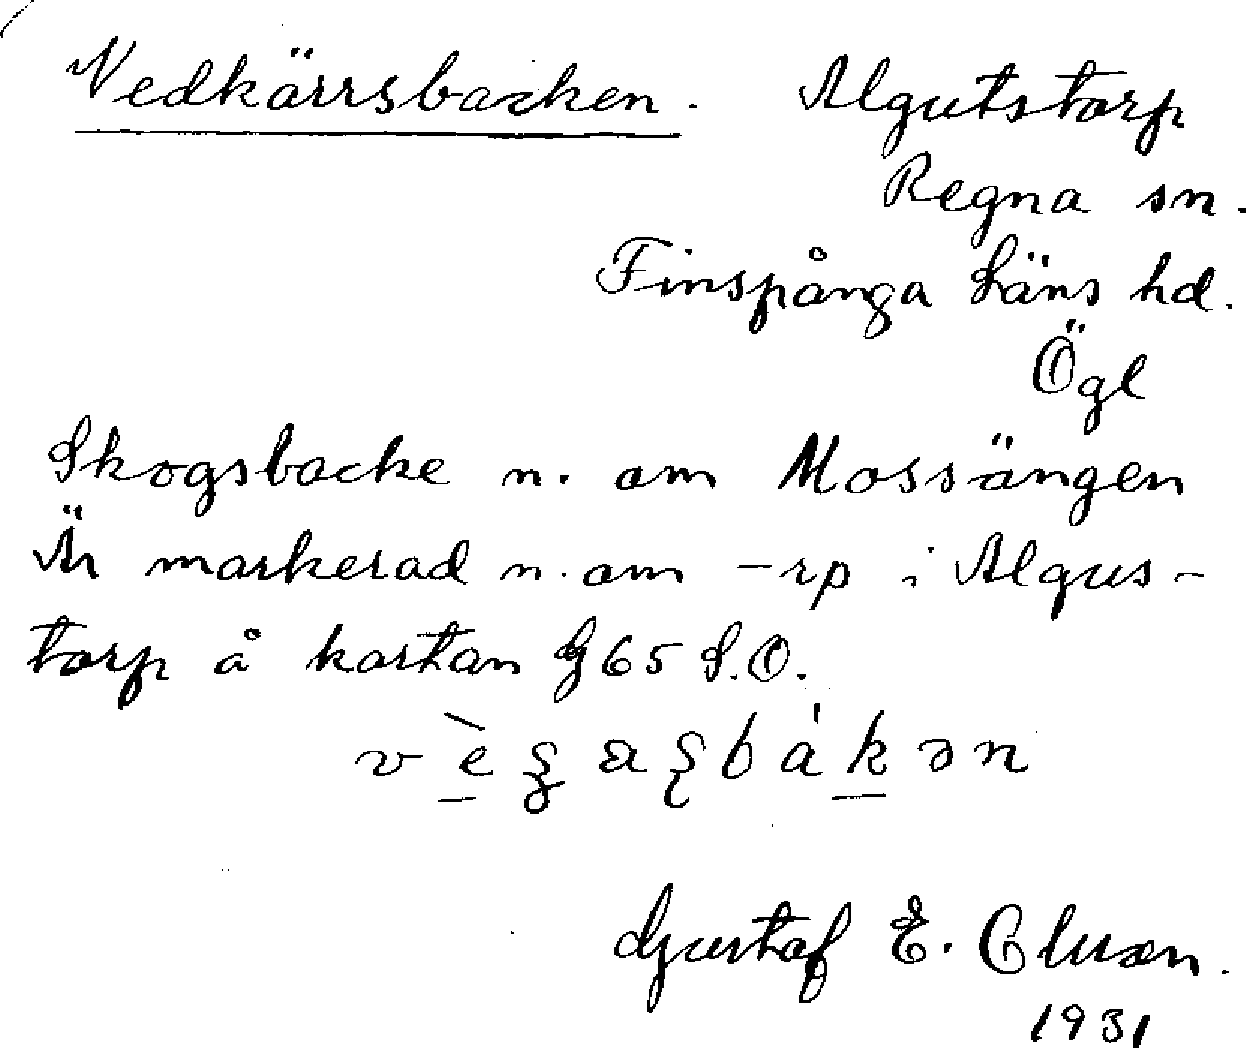 Vedkärrsbacken. Algutstorp
Regna sn.
Finspånga läns hd.
Ögl
Skogsbacke n. om Mossängen
Är markerad n. om -rp i Algus-
torp å kartan G65 S.O.
Gustaf E. Clusen.
1931